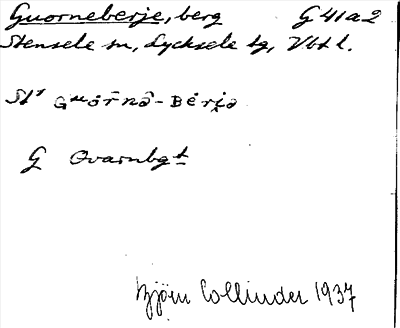 Guorneberje, berg G 41 a 2
Stensele sn, Lycksele tg, Vbt l.
G Qvarnbgt
Björn Collinder 1937